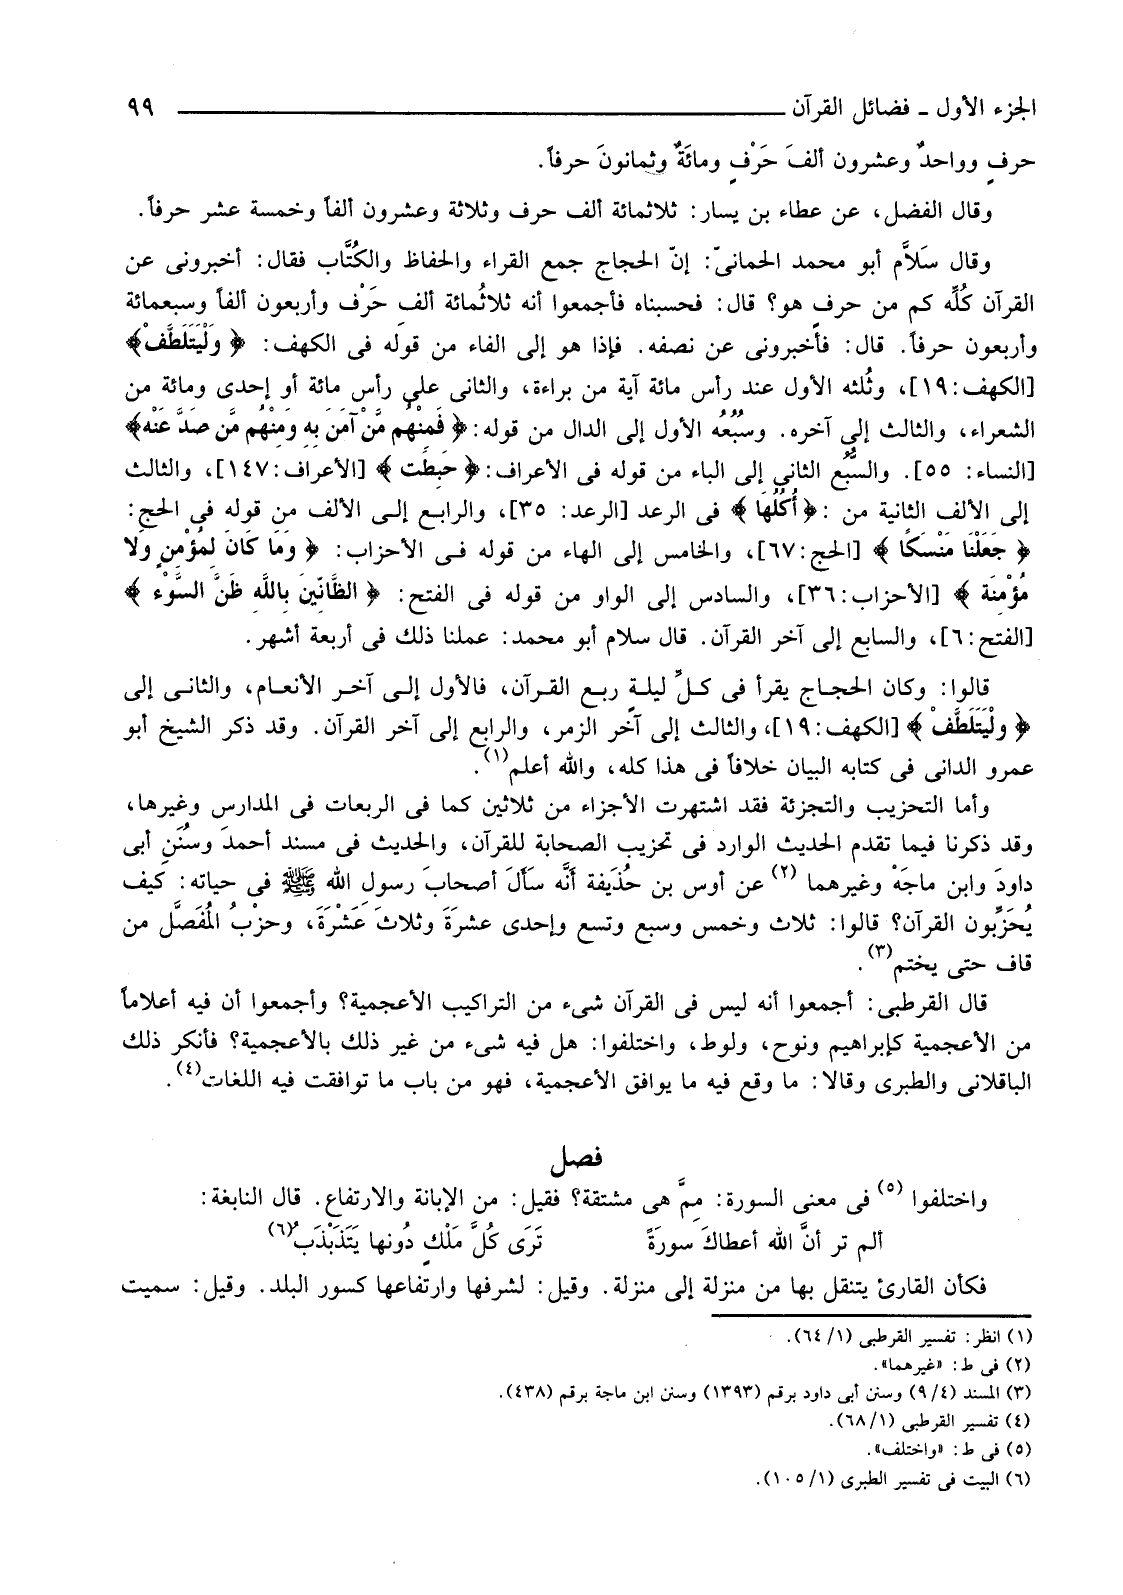 الجزء الأول ـ فضائل القرآن ٩٩
حرفٍ وواحدٌ وعشرون ألفَ حَرْفٍ ومائَةٌ وثمانونَ حرفاً.
وقال الفضل، عن عطاء بن يسار: ثلاثمائة ألف حرف وثلاثة وعشرون ألفاً وخمسة عشر حرفاً.
وقال سَلاَّم أبو محمد الحمانىّ: إنّ الحجاج جمع القراء والحفاظ والكُتَّاب فقال: أخبرونى عن
القرآن كُلِّه كم من حرفٍ هو؟ قال: فحسبناه فأجمعوا أنه ثلاثُمائة ألف حَرْف وأربعون ألفاً وسبعمائة
وأربعون حرفاً. قال: فأخبرونى عن نصفه. فإذا هو إلى الفاء من قوله فى الكهف: ﴿ وَلْيَتَلَطَّفْ﴾
[الكهف:١٩]، وثُلثه الأول عند رأس مائة آية من براءة، والثانى على رأس مائة أو إحدى ومائة من
الشعراء، والثالث إلى آخره. وسُبُعُه الأول إلى الدال من قوله:﴿ فَمِنْهُم مَّنْ آمَنَ بِهِ وَمِنْهُم مَّن صَدَّ عَنْهُ﴾
[النساء: ٥٥]. والسبُّع الثانى إلى الباء من قوله فى الأعراف:﴿ حَبِطَت ﴾ [الأعراف:١٤٧]، والثالث
إلى الألف الثانية من :﴿ أُكُلُهَا ﴾ فى الرعد [الرعد: ٣٥]، والرابع إلى الألف من قوله فى الحج:
﴿ جَعَلْنَا مَنْسَكًا ﴾ [الحج:٦٧]، والخامس إلى الهاء من قوله فى الأحزاب: ﴿ وَمَا كَانَ لِمُؤْمِنٍ وَلا
مُؤْمِنَة ﴾ [الأحزاب:٣٦]، والسادس إلى الواو من قوله فى الفتح: ﴿ الظَّانِّينَ بِاللَّهِ ظَنَّ السَّوْءِ ﴾
[الفتح:٦]، والسابع إلى آخر القرآن. قال سلام أبو محمد: عملنا ذلك فى أربعة أشهر.
قالوا: وكان الحجاج يقرأ فى كلِّ ليلةٍ ربع القرآن، فالأول إلى آخر الأنعام، والثانى إلى
﴿ وَلْيَتَلَطَّفْ ﴾ [الكهف:١٩]، والثالث إلى آخر الزمر، والرابع إلى آخر القرآن. وقد ذكر الشيخ أبو
عمرو الدانى فى كتابه البيان خلافاً فى هذا كله، والله أعلم(١).
وأما التحزيب والتجزئة فقد اشتهرت الأجزاء من ثلاثين كما فى الربعات فى المدارس وغيرها،
وقد ذكرنا فيما تقدم الحديث الوارد فى تحزيب الصحابة للقرآن، والحديث فى مسند أحمدَ وسُنَنِ أبى
داودَ وابن ماجَهْ وغيرهما (٢) عن أوس بن حُذَيفة أنَّه سأَلَ أصحابَ رسول الله ﷺ فى حياته: كيف
يُحَزِّبون القرآن؟ قالوا: ثلاث وخمس وسبع وتسع وإحدى عشرةَ وثلاثَ عَشْرَةَ، وحزْبُ المُفَصَّل من
قاف حتى يختم(٣).
قال القرطبى: أجمعوا أنه ليس فى القرآن شىء من التراكيب الأعجمية؟ وأجمعوا أن فيه أعلاماً
من الأعجمية كإبراهيم ونوح، ولوط، واختلفوا: هل فيه شىء من غير ذلك بالأعجمية؟ فأنكر ذلك
الباقلانى والطبرى وقالا: ما وقع فيه ما يوافق الأعجمية، فهو من باب ما توافقت فيه اللغات(٤).
فصل
واختلفوا (٥) فى معنى السورة: مِمَّ هى مشتقة؟ فقيل: من الإبانة والارتفاع. قال النابغة:
ألم تر أنَّ الله أعطاكَ سورَةً تَرَى كُلَّ مَلْكٍ دُونها يَتَذَبْذَبُ(٦)
فكأن القارئ يتنقل بها من منزلة إلى منزلة. وقيل: لشرفها وارتفاعها كسور البلد. وقيل: سميت
(١) انظر: تفسير القرطبى (١/ ٦٤).
(٢) فى ط: «غيرهما».
(٣) المسند (٤/ ٩) وسنن أبى داود برقم (١٣٩٣) وسنن ابن ماجة برقم (٤٣٨).
(٤) تفسير القرطبى (١/ ٦٨).
(٥) فى ط: «واختلف».
(٦) البيت فى تفسير الطبرى (١/ ١٠٥).